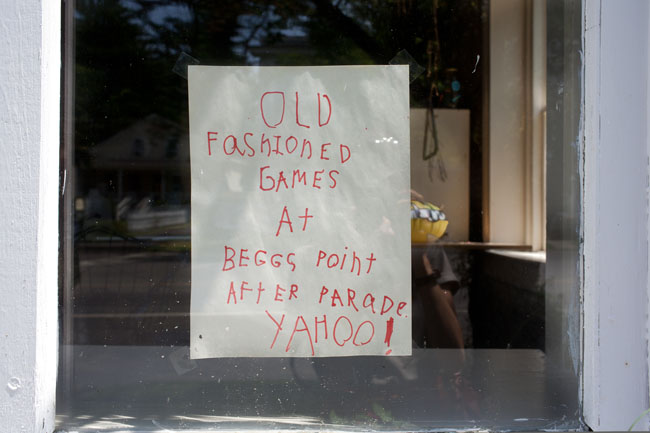 OLD
FaSHIONED
GAMES
At
BEGGS Point
AFTER PARADe
YAHOO!